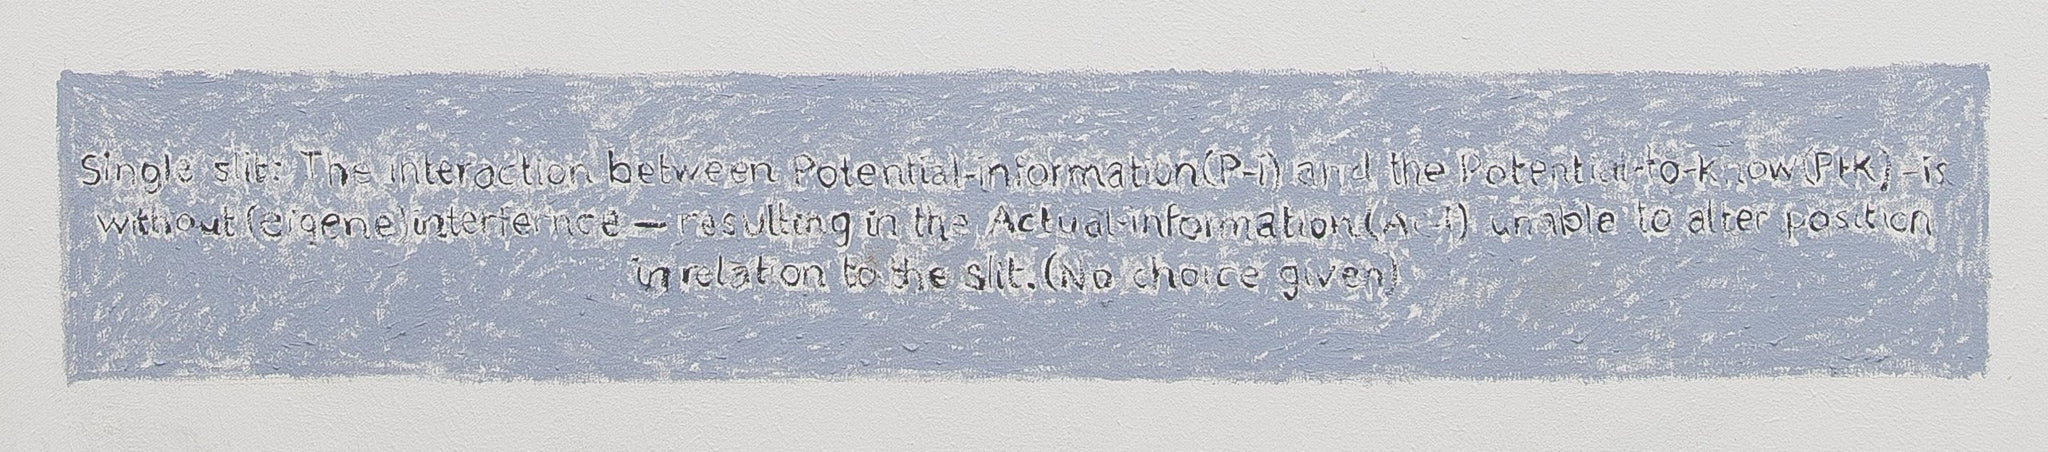 Single slit: The interaction between Potential-information(P-i) and the Potential-to-know(PtK) -is
without (eigene)interfernce — resulting in the Actual-information(A-I) unable to alter position
in relation to the slit. (No choice given)